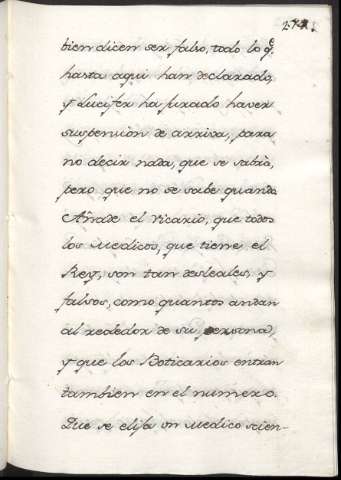 bien dicen ser falso, todo lo q.e
hasta aqui han declarado,
y Lucifer ha jurado haver
suspension de arriva, para
no decir nada, que se sabrà,
pero que no se sabe quando
Añade el Vicario, que todos
los Medicos, que tiene el
Rey, son tan desleales, y
falsos, como quantos andan
al rededor de su persona,
y que los Boticarios entran
tambien en el numero.
Que se elija un Medico scien-